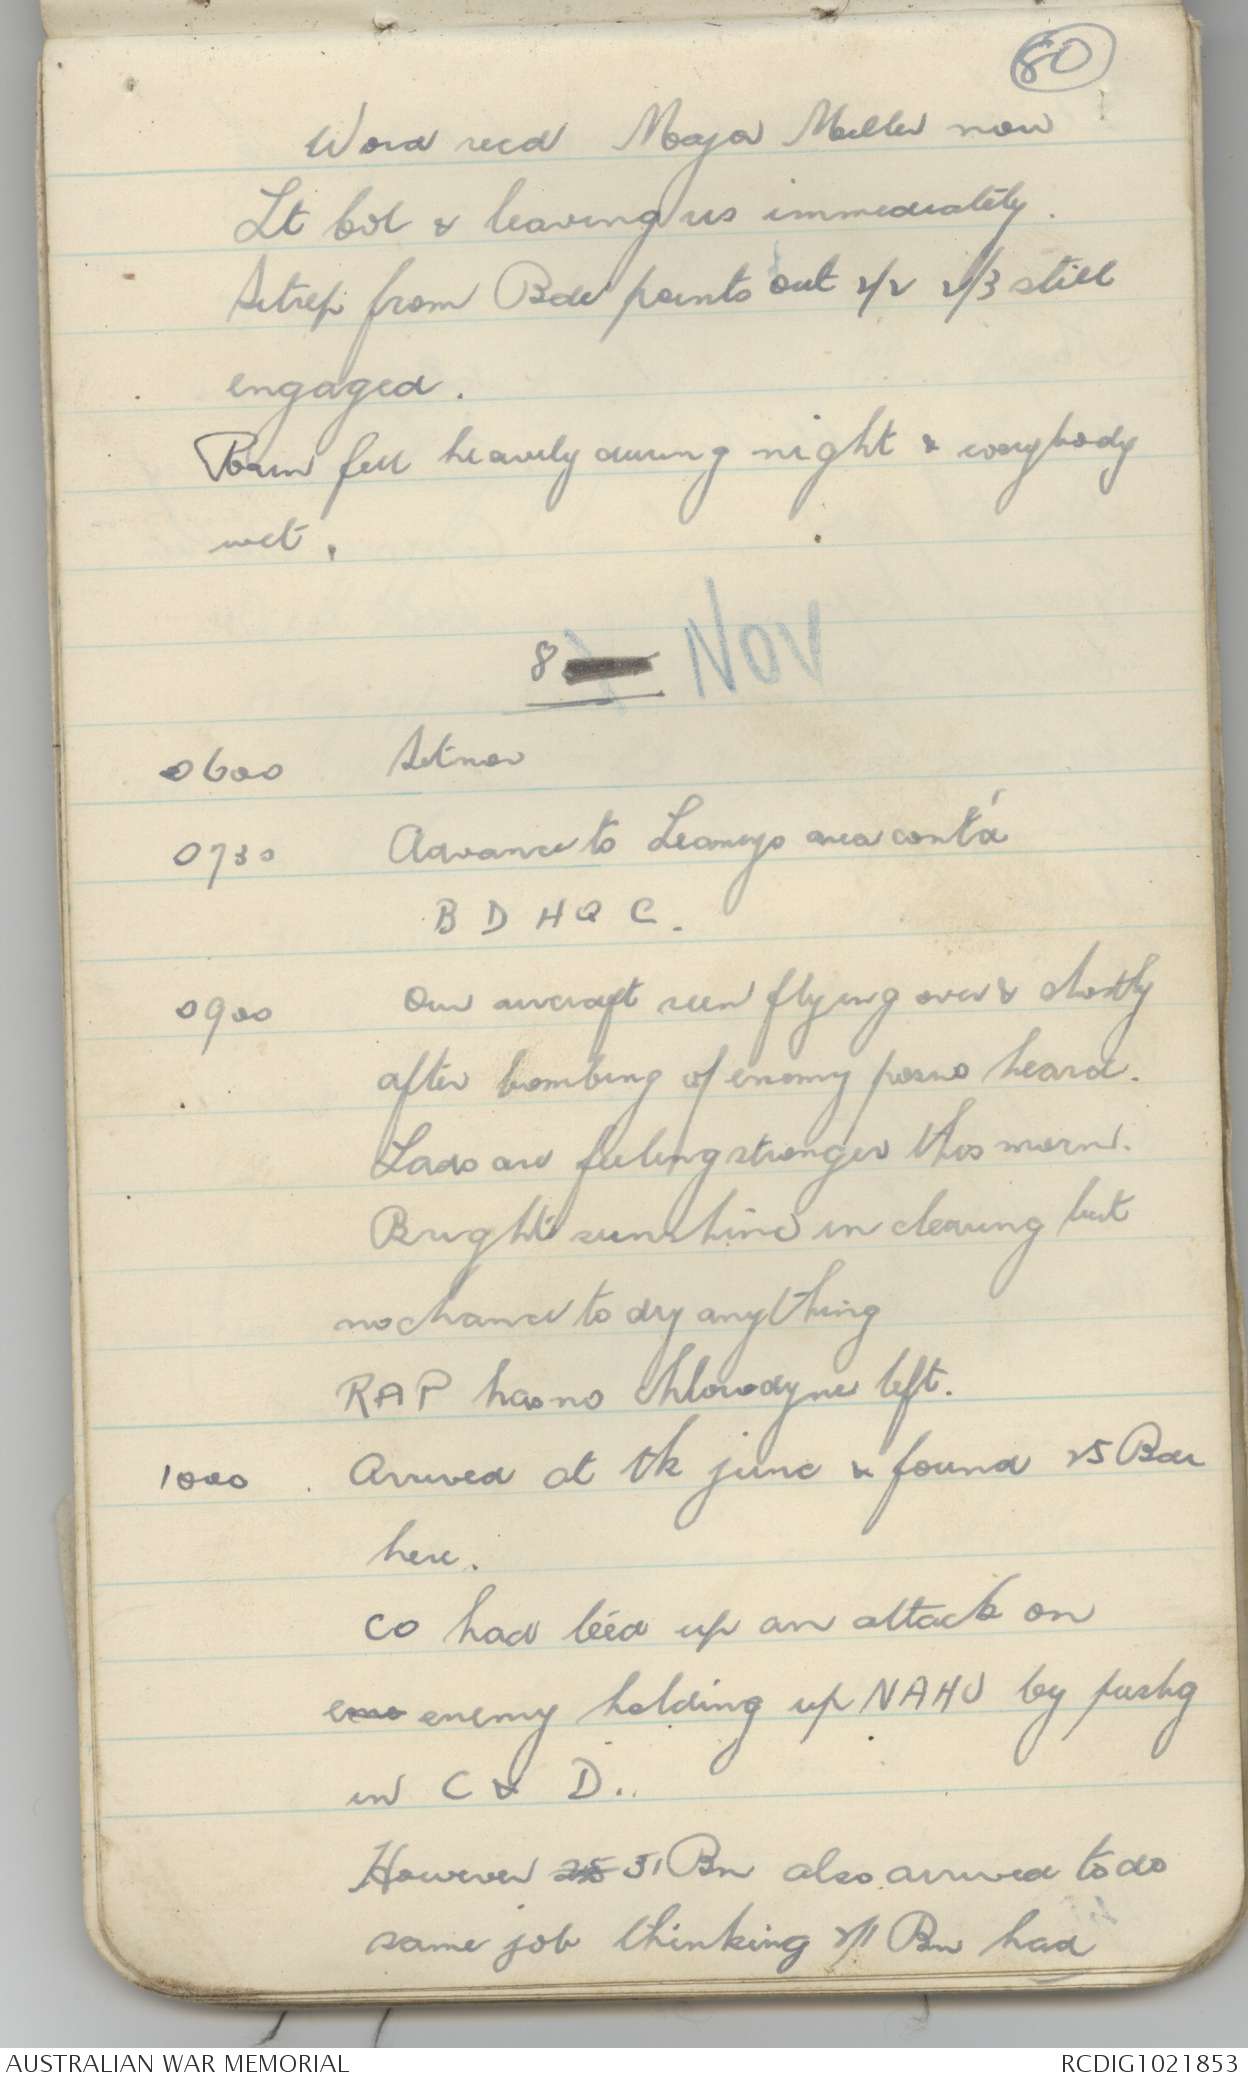 80
Word recd Major Miller now
Lt Col & leaving us immediately.
Sitrep from Bde points out 2/2 2/3 still
engaged.
Rain fell heavily during night & everybody
wet.
8 NOV
0600 Sitnor
0730 Advance to Leaneys area cont'd
B D HQ C.
0900 Our aircraft seen flying over & shortly
after bombing of enemy posns heard.
Lads are feeling stronger this morn.
Bright sunshine in clearing but
no chance to dry anything
RAP has no chlorodyne left.
1000 Arrived at tk junc & found 25 Bde
here.
CO had teed up an attack on
eno enemy holding up NAHU by pushg
in C & D..
However 25 31 Bn also arrived to do
same job thinking 2/1 Bn had
AUSTRALIAN WAR MEMORIAL
RCDIG1021853